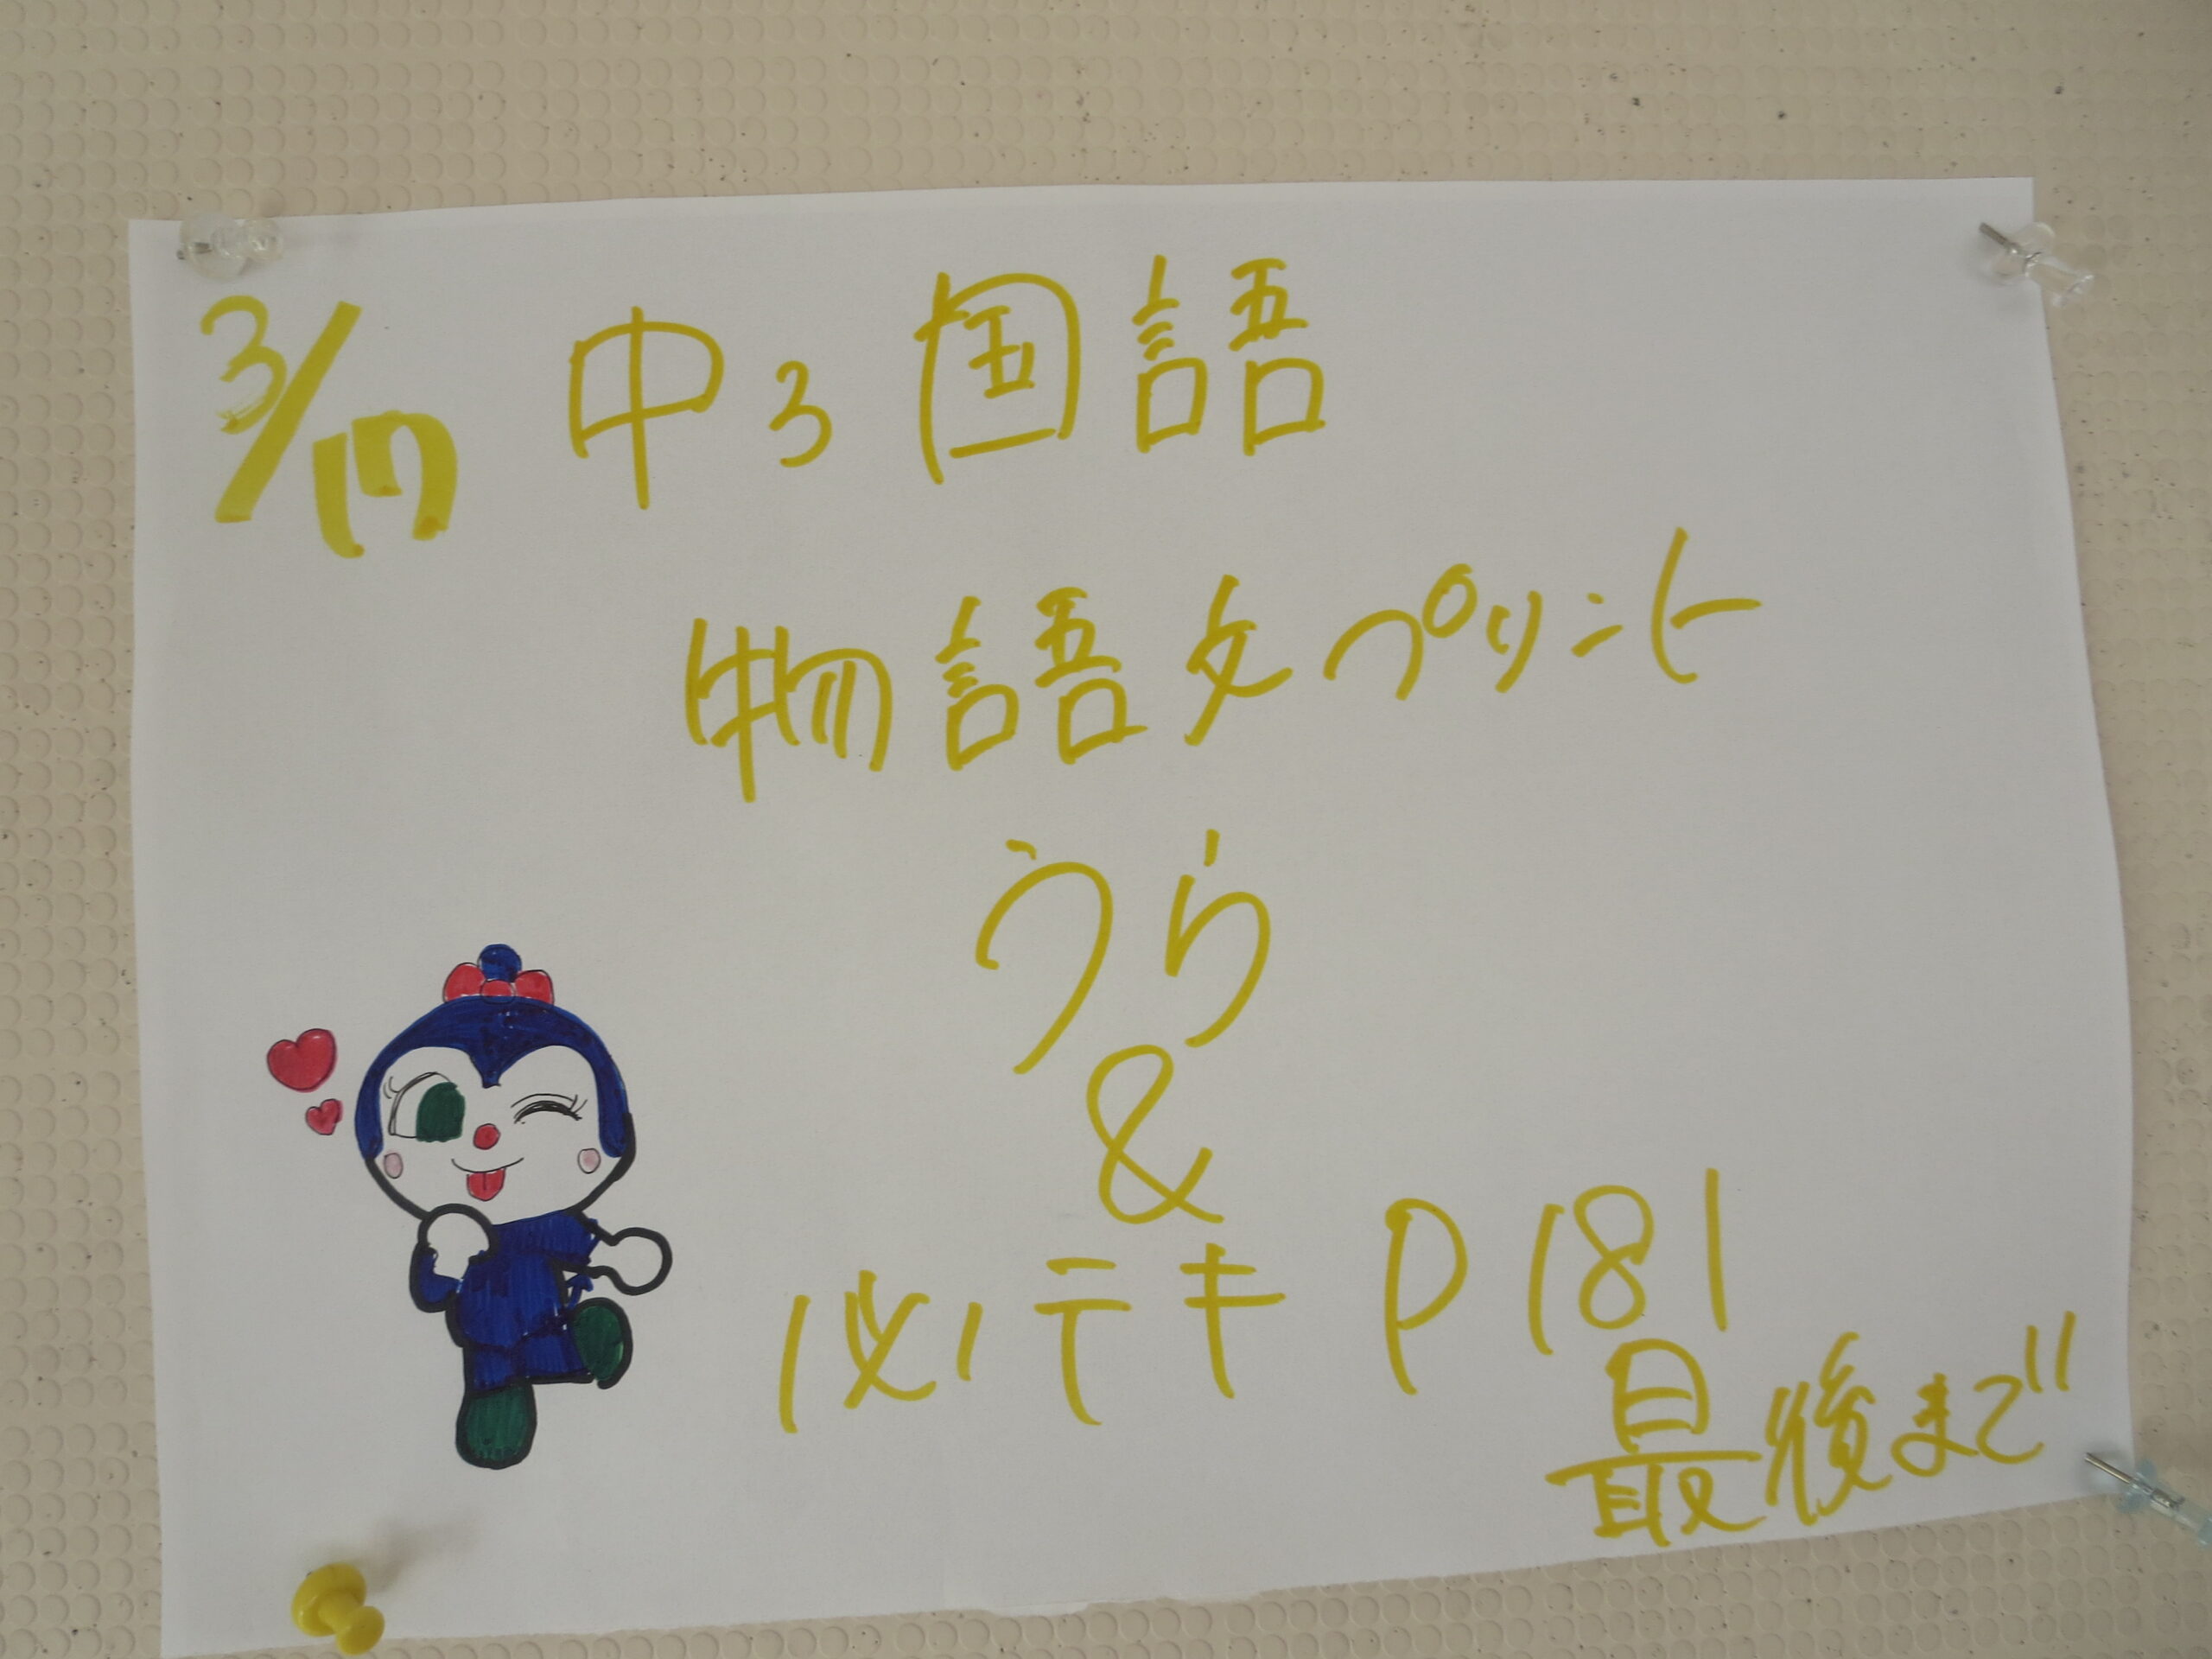 3/17 中3国語
物語文プリント
うら
&
必テキ P181
最後まで